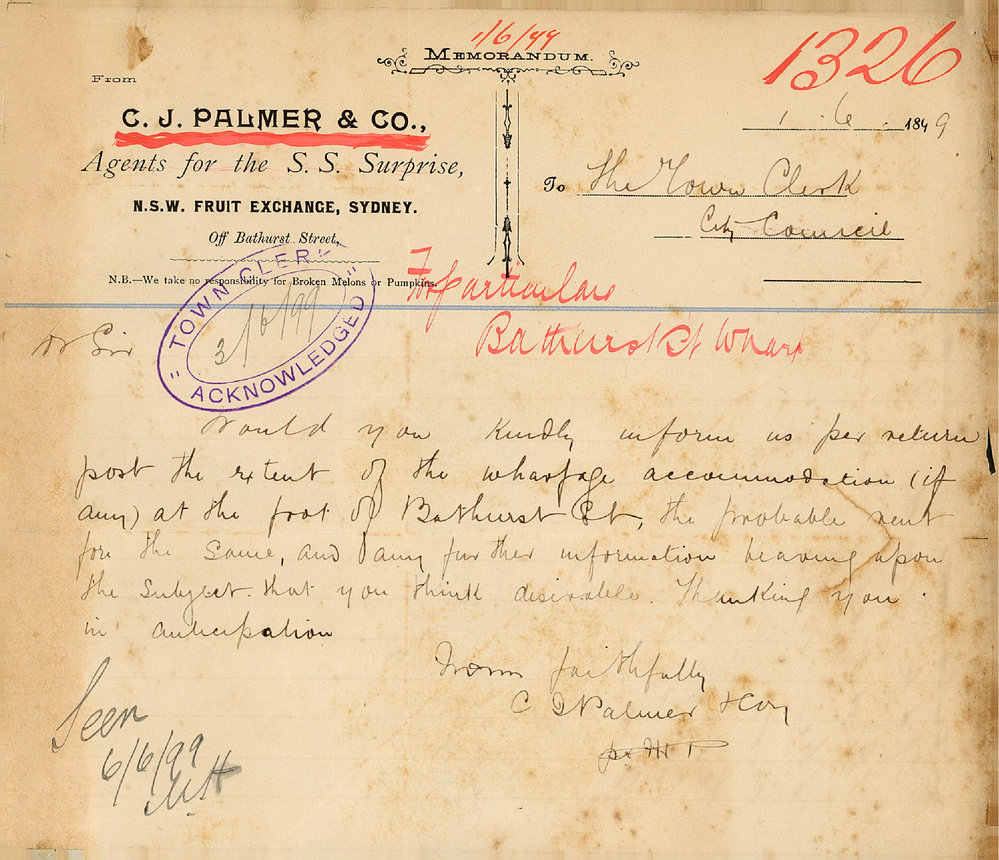 1/6/99
MEMORANDUM.
1326
From
C. J. PALMER & CO.,
Agents for the S. S. Surprise,
N.S.W. FRUIT EXCHANGE, SYDNEY.
Off Bathurst Street,
N.B.—We take no responsibility for Broken Melons or Pumpkins.
1.6.1899
To The Town Clerk
City Council
For particulars
Bathurst St Wharf
TOWN CLERK
3/6/99
ACKNOWLEDGED
Dr Sir
Would you kindly inform us per return
post the extent of the wharfage accommodation (if
any) at the foot of Bathurst St, the probable rent
for the same, and any further information bearing upon
the subject that you think desirable. Thanking you
in anticipation
Yours faithfully
C J Palmer & Coy
Seen
6/6/99